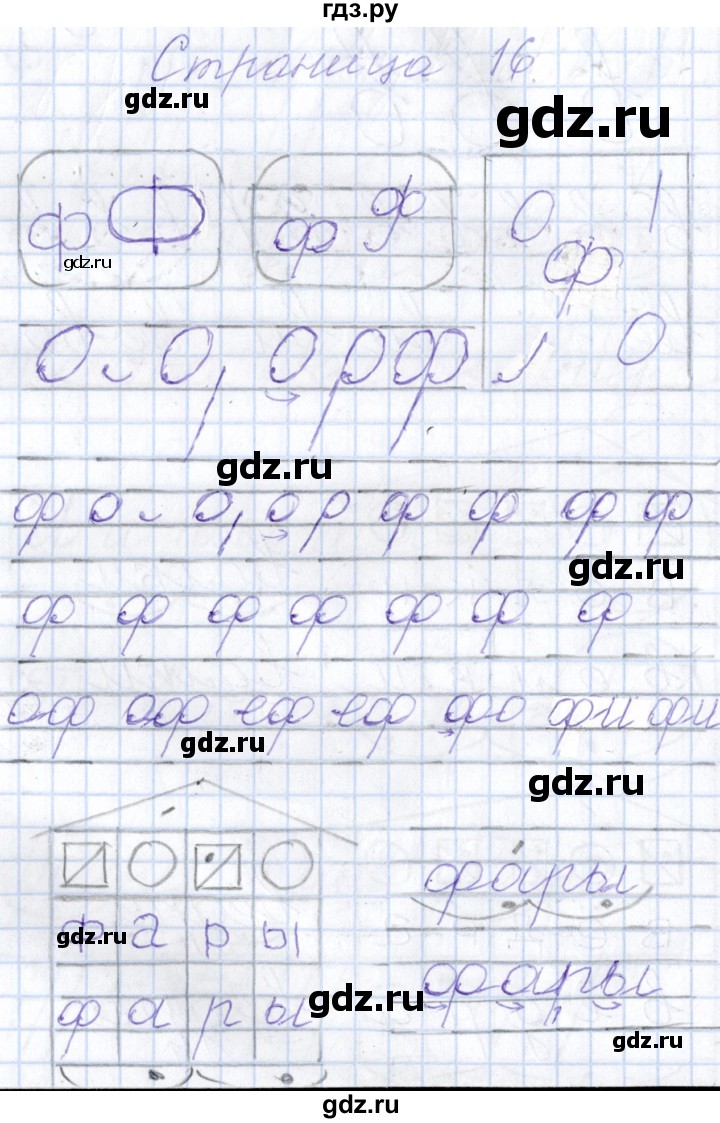 гдз.ру
Страница 16
gdz.ru
gdz.ru
ф Ф
ф ф
О 1
ф
gdz.ru
О
О О, о р ф
gdz.ru
ф о о, о р ф ф ф ф
gdz.ru
ф ф ф ф ф ф ф
оф оф еф еф фо фи фи
gdz.ru
gdz.ru
фары
ф а р ы
gdz.ru
фары
ф а р ы
gdz.ru
gdz.ru
gdz.ru